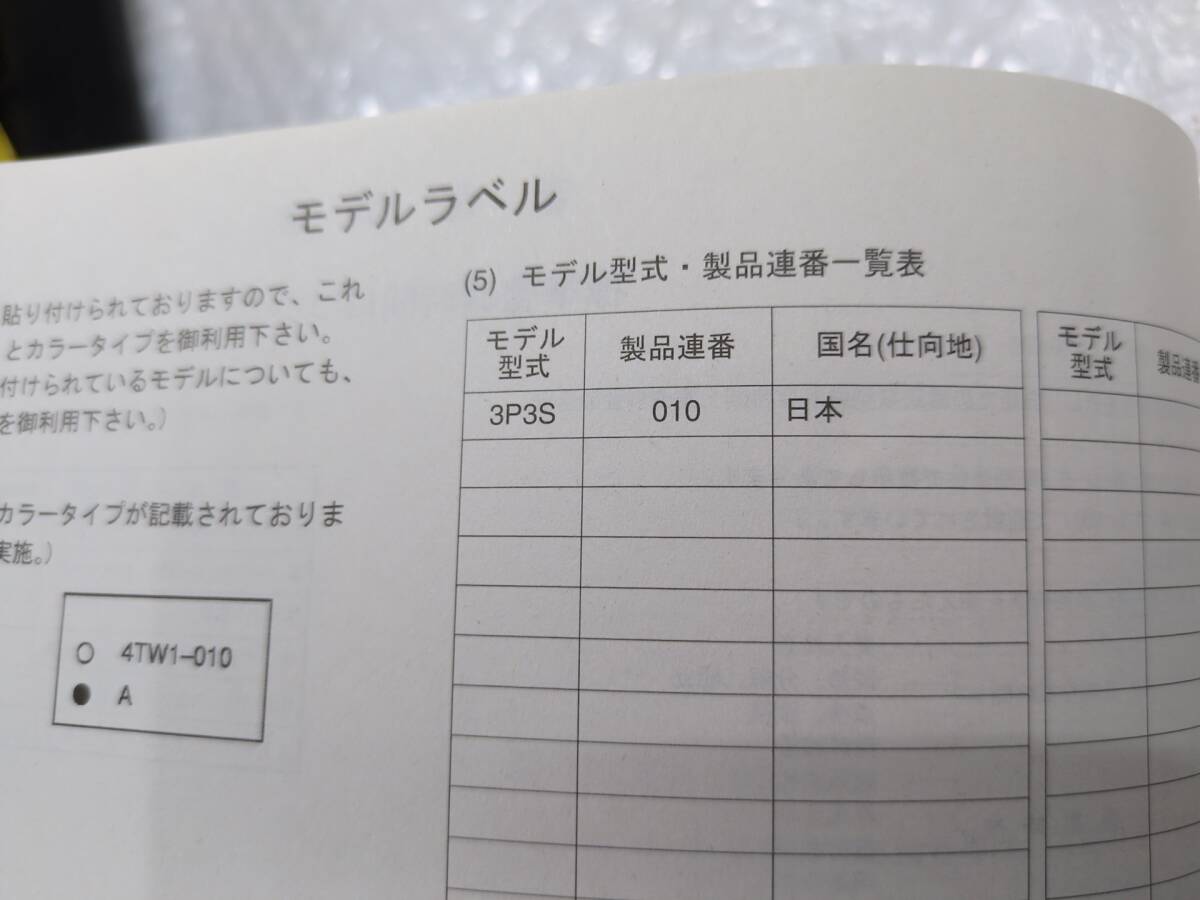 モデルラベル
貼り付けられておりますので、これ
とカラータイプを御利用下さい。
付けられているモデルについても、
を御利用下さい。)
カラータイプが記載されておりま
実施。)
○ 4TW1-010
● A
(5) モデル型式・製品連番一覧表
モデル型式 製品連番 国名(仕向地)
3P3S 010 日本
モデル型式 製品連番